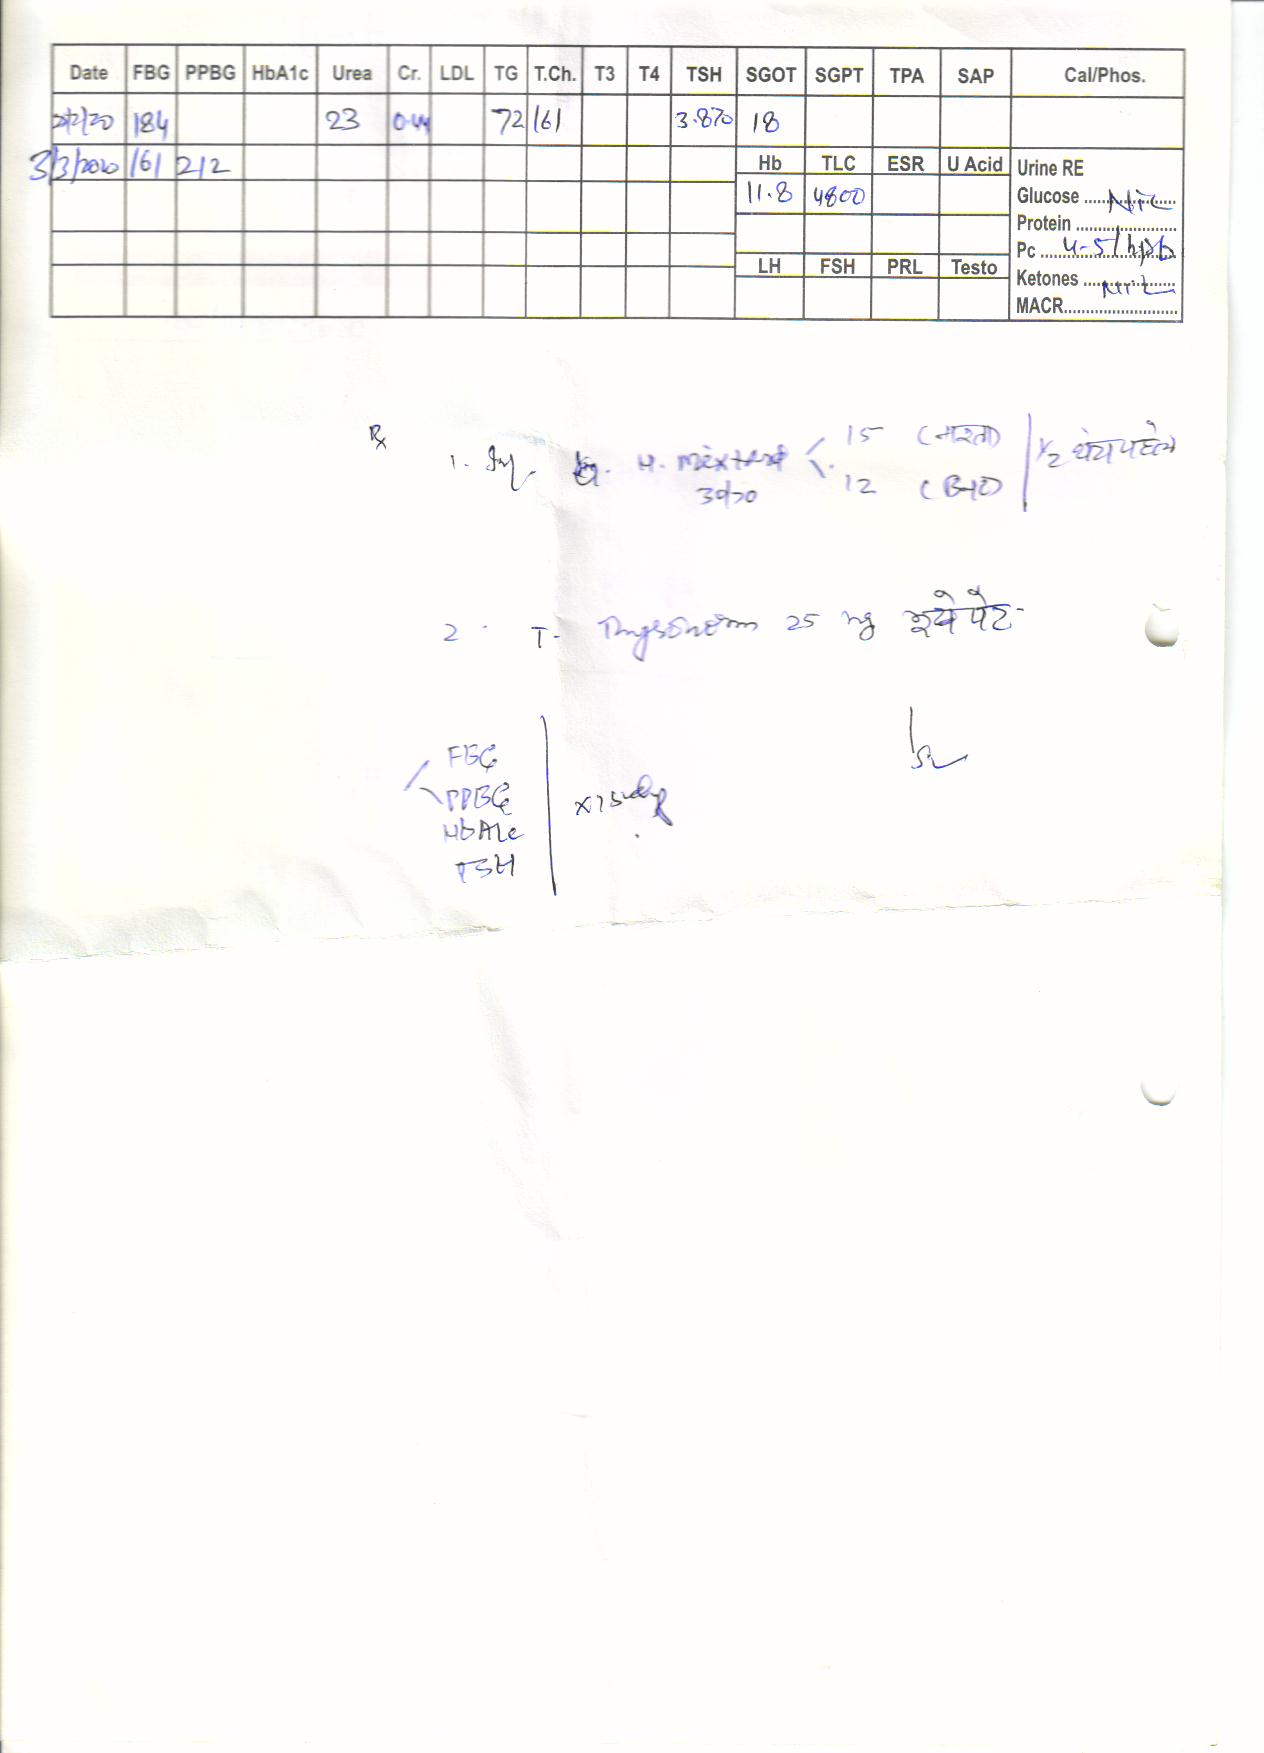 Date FBG PPBG HbA1c Urea Cr. LDL TG T.Ch. T3 T4 TSH SGOT SGPT TPA SAP Cal/Phos.
184 23 0.44 72 161 3.870 18
3/3/2020 161 212
Hb TLC ESR U Acid Urine RE
11.8 4800 Glucose Nil
Protein
Pc 4-5/hpf
LH FSH PRL Testo Ketones Nil
MACR
Rx
1. Inj. H. Mixtard 15 (नाश्ता)
30/70 12 (BHD) 1/2 घंटा पहले
2. T- Thyronorm 25 mg
FBG
PPBG
HbA1c
TSH